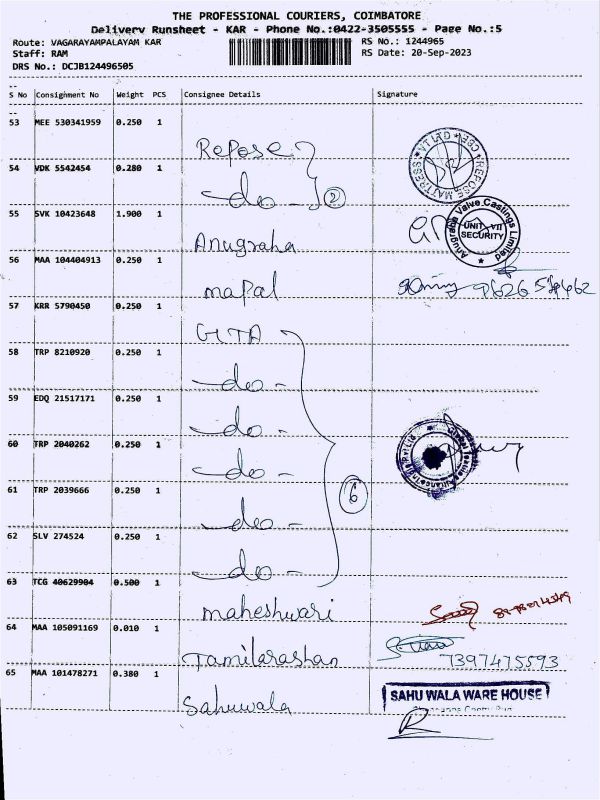 THE PROFESSIONAL COURIERS, COIMBATORE
Delivery Runsheet - KAR - Phone No.:0422-3505555 - Page No.:5
Route: VAGARAYAMPALAYAM KAR RS No.: 1244965
Staff: RAM RS Date: 20-Sep-2023
DRS No.: DCJB124496505
S No Consignment No Weight PCS Consignee Details Signature
53 MEE 530341959 0.250 1
Repose
54 VDK 5542454 0.280 1
-do- 2
VT LTD * CBE * REPOSE MATTRESS
55 SVK 10423648 1.900 1
Anugraha
Anugraha Valve Castings Limited
UNIT VII
SECURITY
56 MAA 104404913 0.250 1
mapal
57 KRR 5790450 0.250 1
GTTA
58 TRP 8210920 0.250 1
-do-
59 EDQ 21517171 0.250 1
-do-
60 TRP 2040262 0.250 1
-do-
6
61 TRP 2039666 0.250 1
-do-
62 SLV 274524 0.250 1
-do-
63 TCG 40629904 0.500 1
maheshwari
64 MAA 105091169 0.010 1
Tamilarashan 7397475593
65 MAA 101478271 0.380 1
Sahuwala
SAHU WALA WARE HOUSE